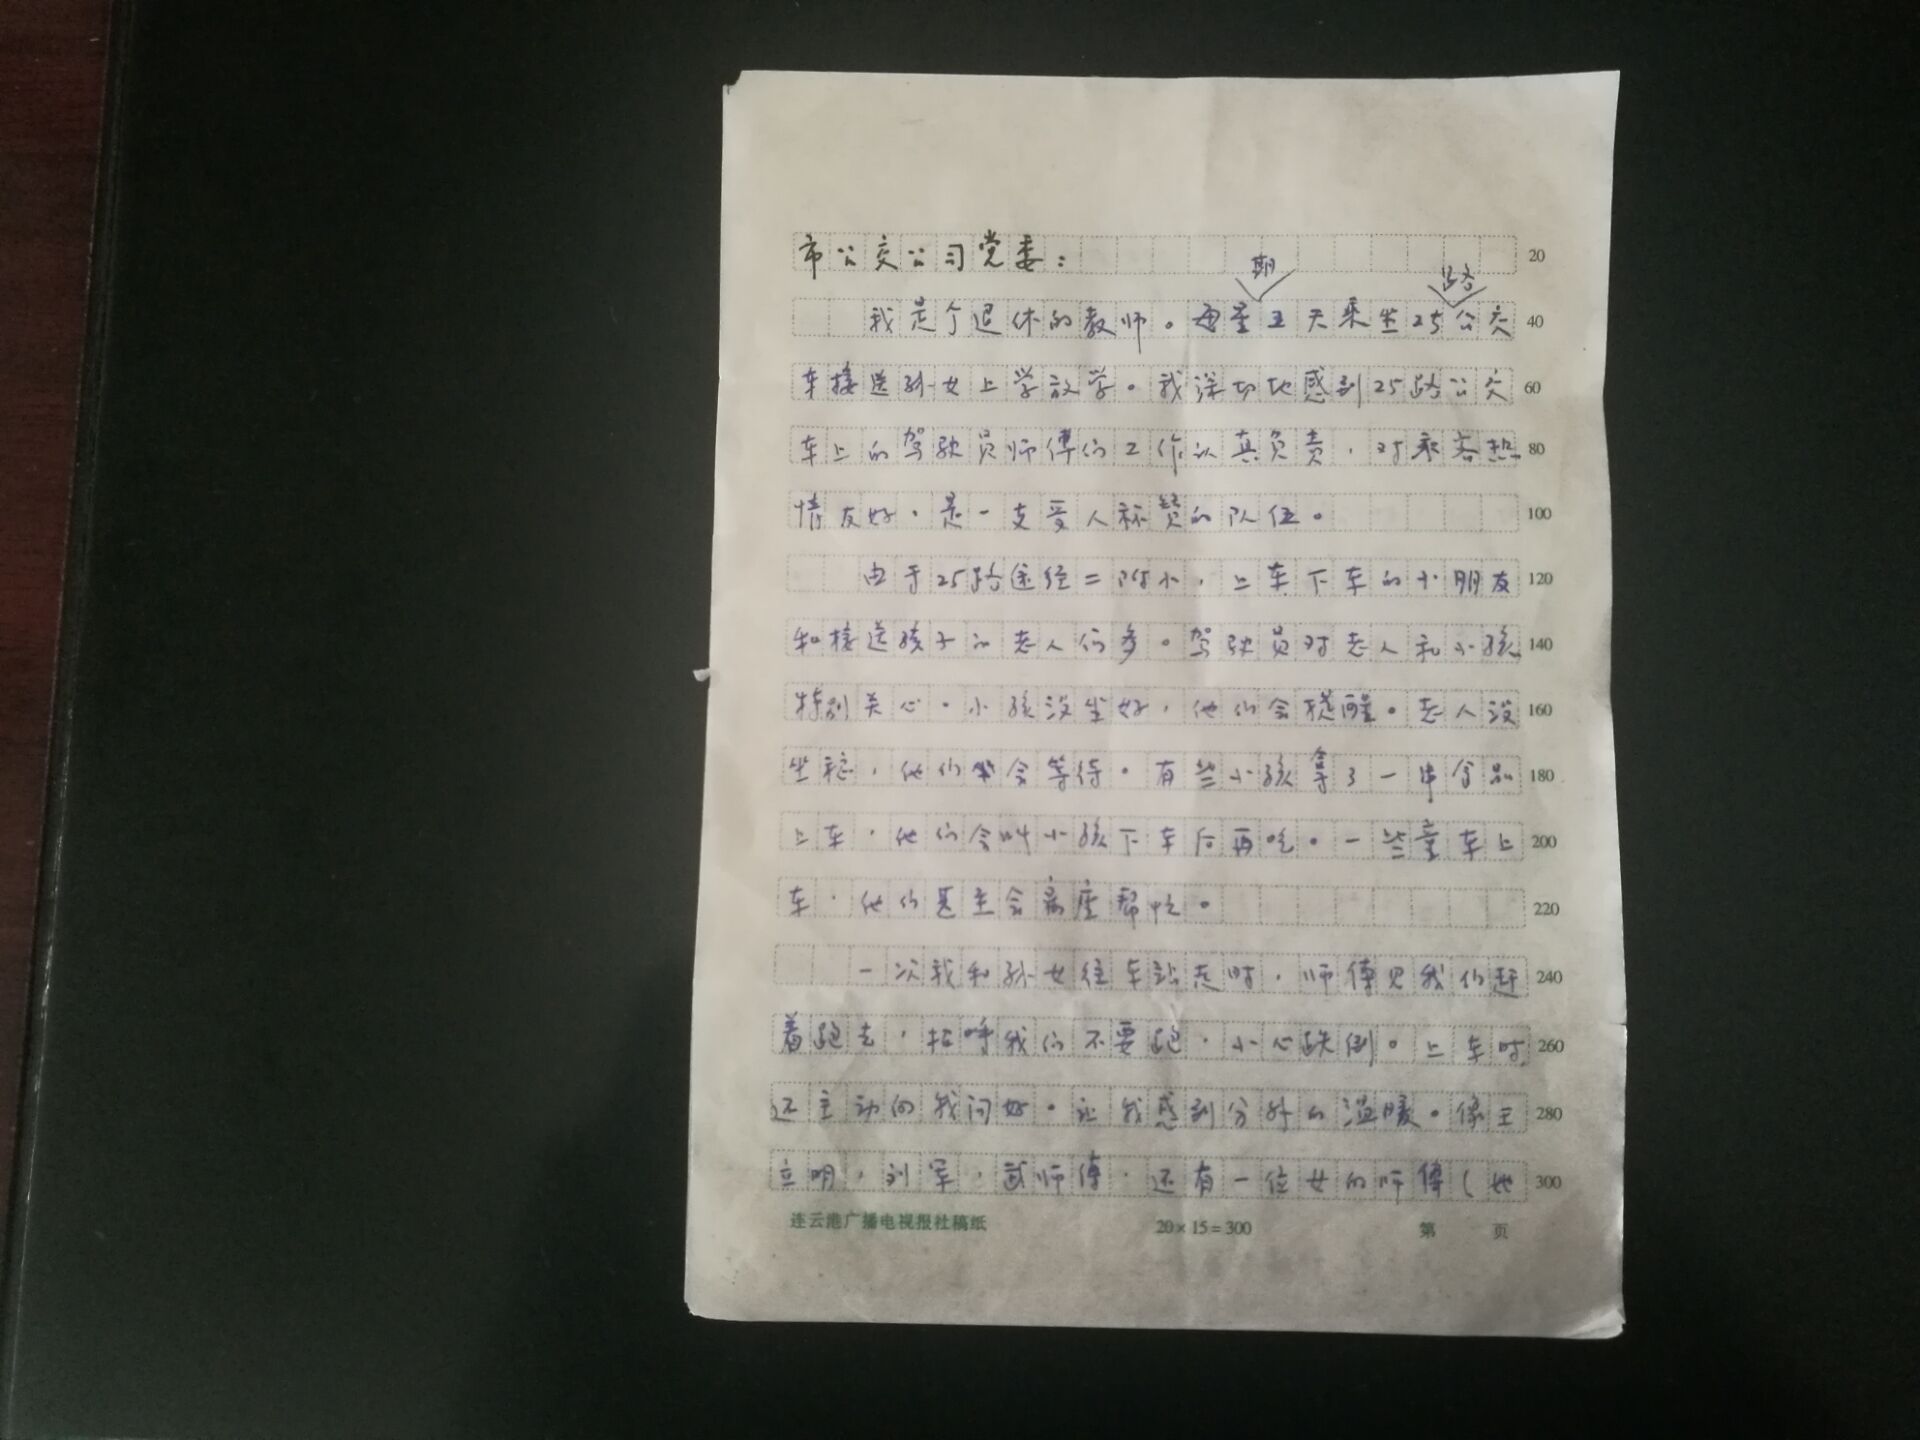 市公交公司党委： 20
我是个退休的教师。每星期五天乘坐25路公交 40
车接送孙女上学放学。我深切地感到25路公交 60
车上的驾驶员师傅们工作认真负责，对乘客热 80
情友好，是一支受人称赞的队伍。 100
由于25路途经二附小，上车下车的小朋友 120
和接送孩子的老人们多。驾驶员对老人和小孩 140
特别关心。小孩没坐好，他们会提醒。老人没 160
坐稳，他们会等待。有些小孩拿了一串食品 180
上车，他们会叫小孩下车后再吃。一些童车上 200
车，他们甚至会离座帮忙。 220
一次我和孙女往车站走时，师傅见我们赶 240
着跑去，招呼我们不要跑，小心跌倒。上车时 260
还主动向我问好。让我感到分外的温暖。像王 280
立明，刘军，武师傅，还有一位女的师傅（她 300
连云港广播电视报社稿纸 20×15=300 第 页